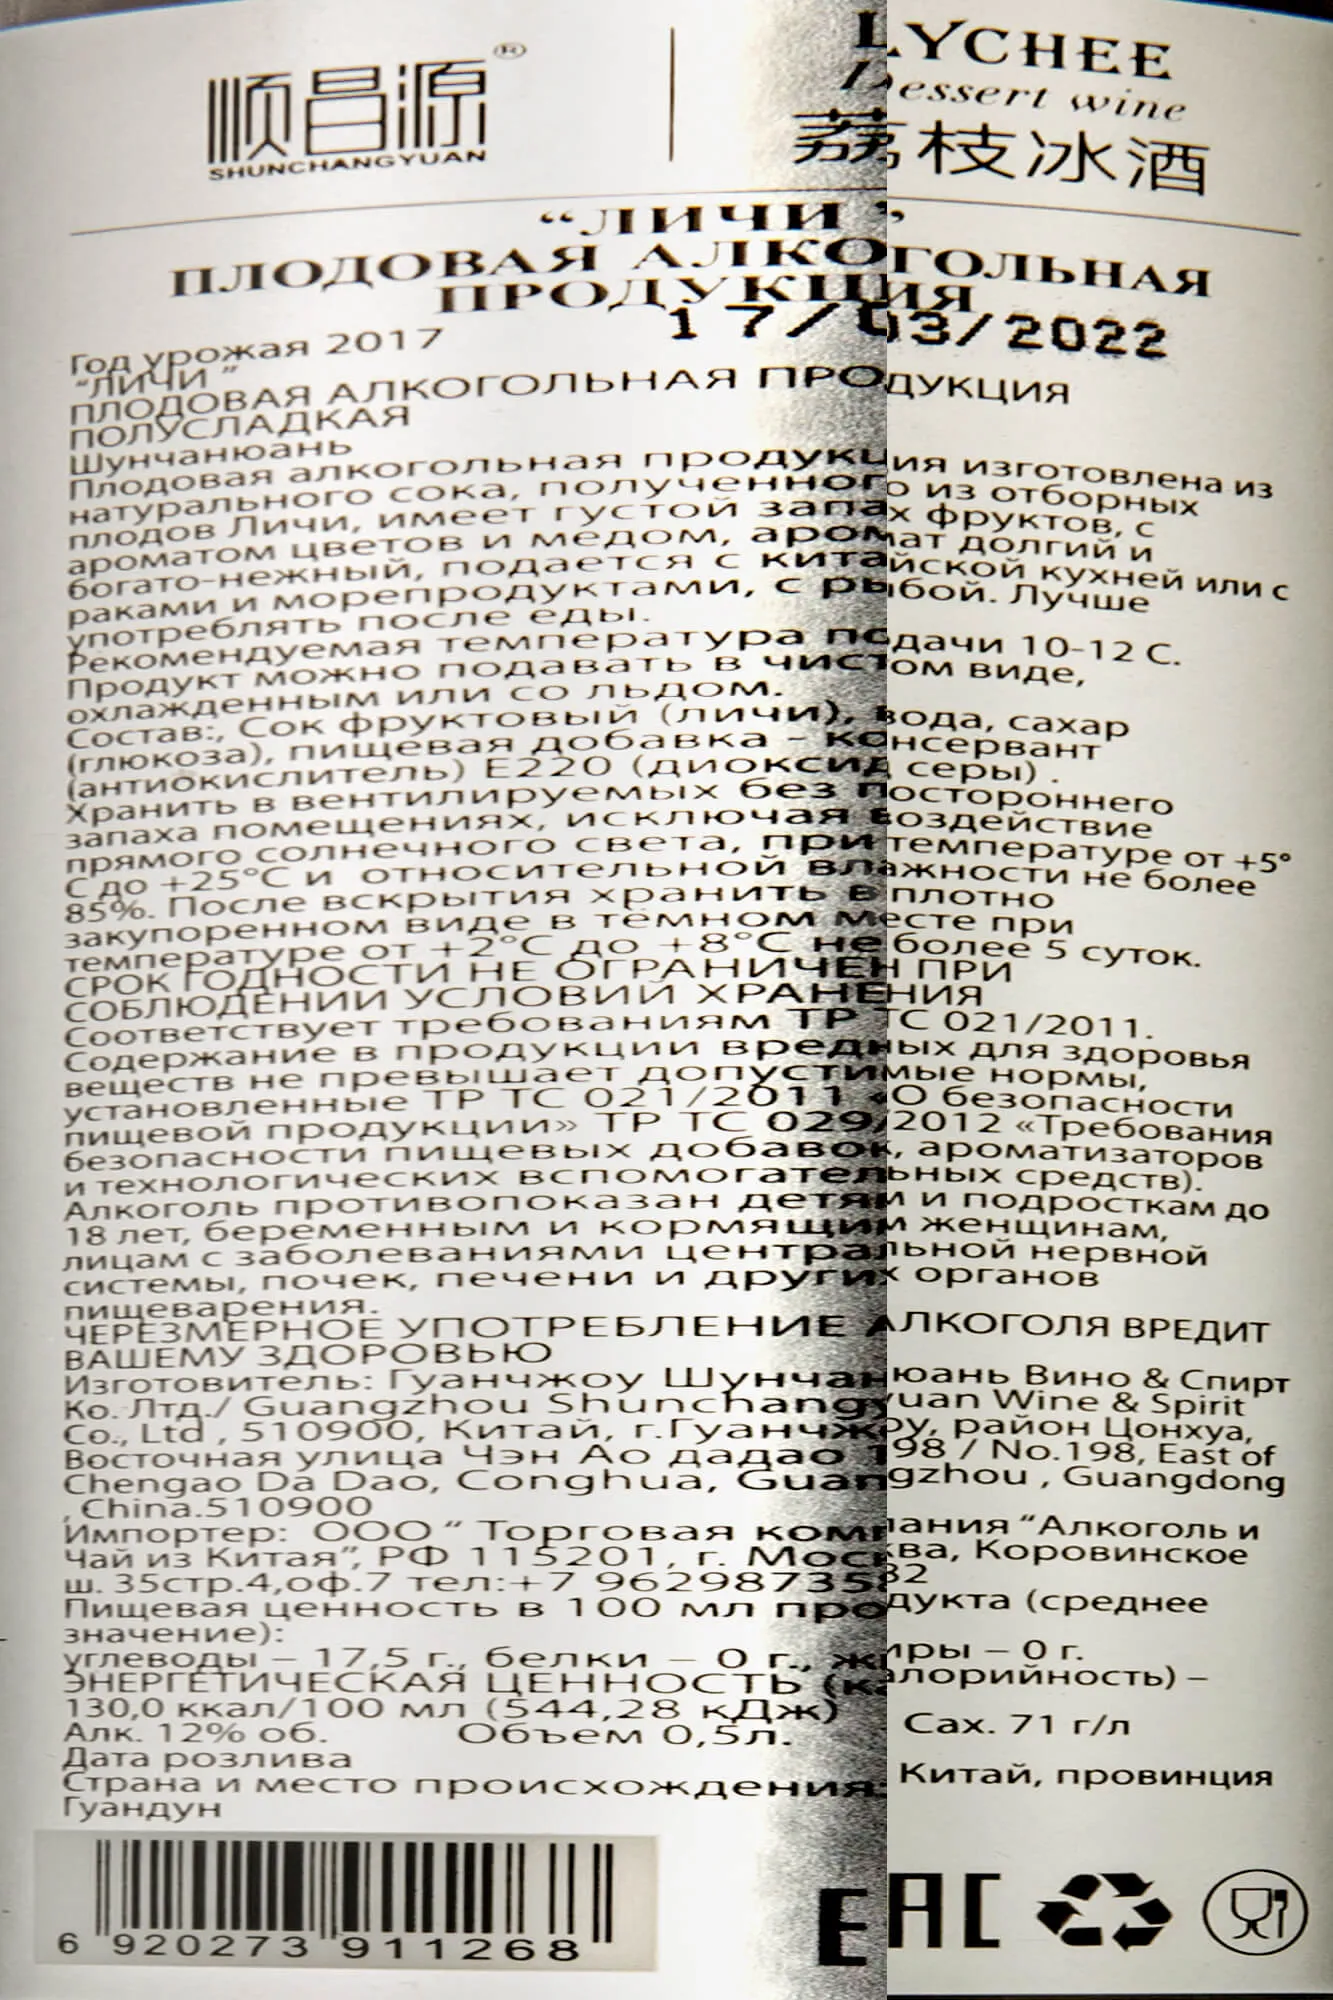 顺昌源®
SHUNCHANGYUAN
LYCHEE
Dessert wine
荔枝冰酒
“ЛИЧИ ”
ПЛОДОВАЯ АЛКОГОЛЬНАЯ
ПРОДУКЦИЯ
17/03/2022
Год урожая 2017
“ЛИЧИ ”
ПЛОДОВАЯ АЛКОГОЛЬНАЯ ПРОДУКЦИЯ
ПОЛУСЛАДКАЯ
Шунчанюань
Плодовая алкогольная продукция изготовлена из
натурального сока, полученного из отборных
плодов Личи, имеет густой запах фруктов, с
ароматом цветов и медом, аромат долгий и
богато-нежный, подается с китайской кухней или с
раками и морепродуктами, с рыбой. Лучше
употреблять после еды.
Рекомендуемая температура подачи 10-12 С.
Продукт можно подавать в чистом виде,
охлажденным или со льдом.
Состав:, Сок фруктовый (личи), вода, сахар
(глюкоза), пищевая добавка - консервант
(антиокислитель) Е220 (диоксид серы) .
Хранить в вентилируемых без постороннего
запаха помещениях, исключая воздействие
прямого солнечного света, при температуре от +5°
С до +25°С и относительной влажности не более
85%. После вскрытия хранить в плотно
закупоренном виде в тёмном месте при
температуре от +2°С до +8°С не более 5 суток.
СРОК ГОДНОСТИ НЕ ОГРАНИЧЕН ПРИ
СОБЛЮДЕНИИ УСЛОВИЙ ХРАНЕНИЯ
Соответствует требованиям ТР ТС 021/2011.
Содержание в продукции вредных для здоровья
веществ не превышает допустимые нормы,
установленные ТР ТС 021/2011 «О безопасности
пищевой продукции» ТР ТС 029/2012 «Требования
безопасности пищевых добавок, ароматизаторов
и технологических вспомогательных средств).
Алкоголь противопоказан детям и подросткам до
18 лет, беременным и кормящим женщинам,
лицам с заболеваниями центральной нервной
системы, почек, печени и других органов
пищеварения.
ЧЕРЕЗМЕРНОЕ УПОТРЕБЛЕНИЕ АЛКОГОЛЯ ВРЕДИТ
ВАШЕМУ ЗДОРОВЬЮ
Изготовитель: Гуанчжоу Шунчанюань Вино & Спирт
Ко. Лтд./ Guangzhou Shunchangyuan Wine & Spirit
Co., Ltd , 510900, Китай, г.Гуанчжоу, район Цонхуа,
Восточная улица Чэн Ао дадао 198 / No.198, East of
Chengao Da Dao, Conghua, Guangzhou , Guangdong
, China.510900
Импортер: ООО “ Торговая компания “Алкоголь и
Чай из Китая”, РФ 115201, г. Москва, Коровинское
ш. 35стр.4,оф.7 тел:+7 9629873582
Пищевая ценность в 100 мл продукта (среднее
значение):
углеводы – 17,5 г., белки – 0 г., жиры – 0 г.
ЭНЕРГЕТИЧЕСКАЯ ЦЕННОСТЬ (калорийность) –
130,0 ккал/100 мл (544,28 кДж)
Алк. 12% об. Объем 0,5л. Сах. 71 г/л
Дата розлива
Страна и место происхождения: Китай, провинция
Гуандун
6 920273 911268
EAC